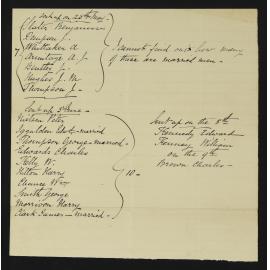 Sent up on 25th May
Slater Benjamin
Simpson J.
Whittaker A
Armitage A. J.
Bentley J.
Hughes J. M
Thompson J.
7
I cannot find out how many
of these are married men.
Sent up 5 June
Peter
married
Thompson George - married
Edwards Charles
Kelly W.
Hilton Harry
Wm
Smith George
Morrison Harry
Clark James - Married
10
Sent up on the 8th
Kennedy Edward
Kenney William
on the 9th
Brown Charles